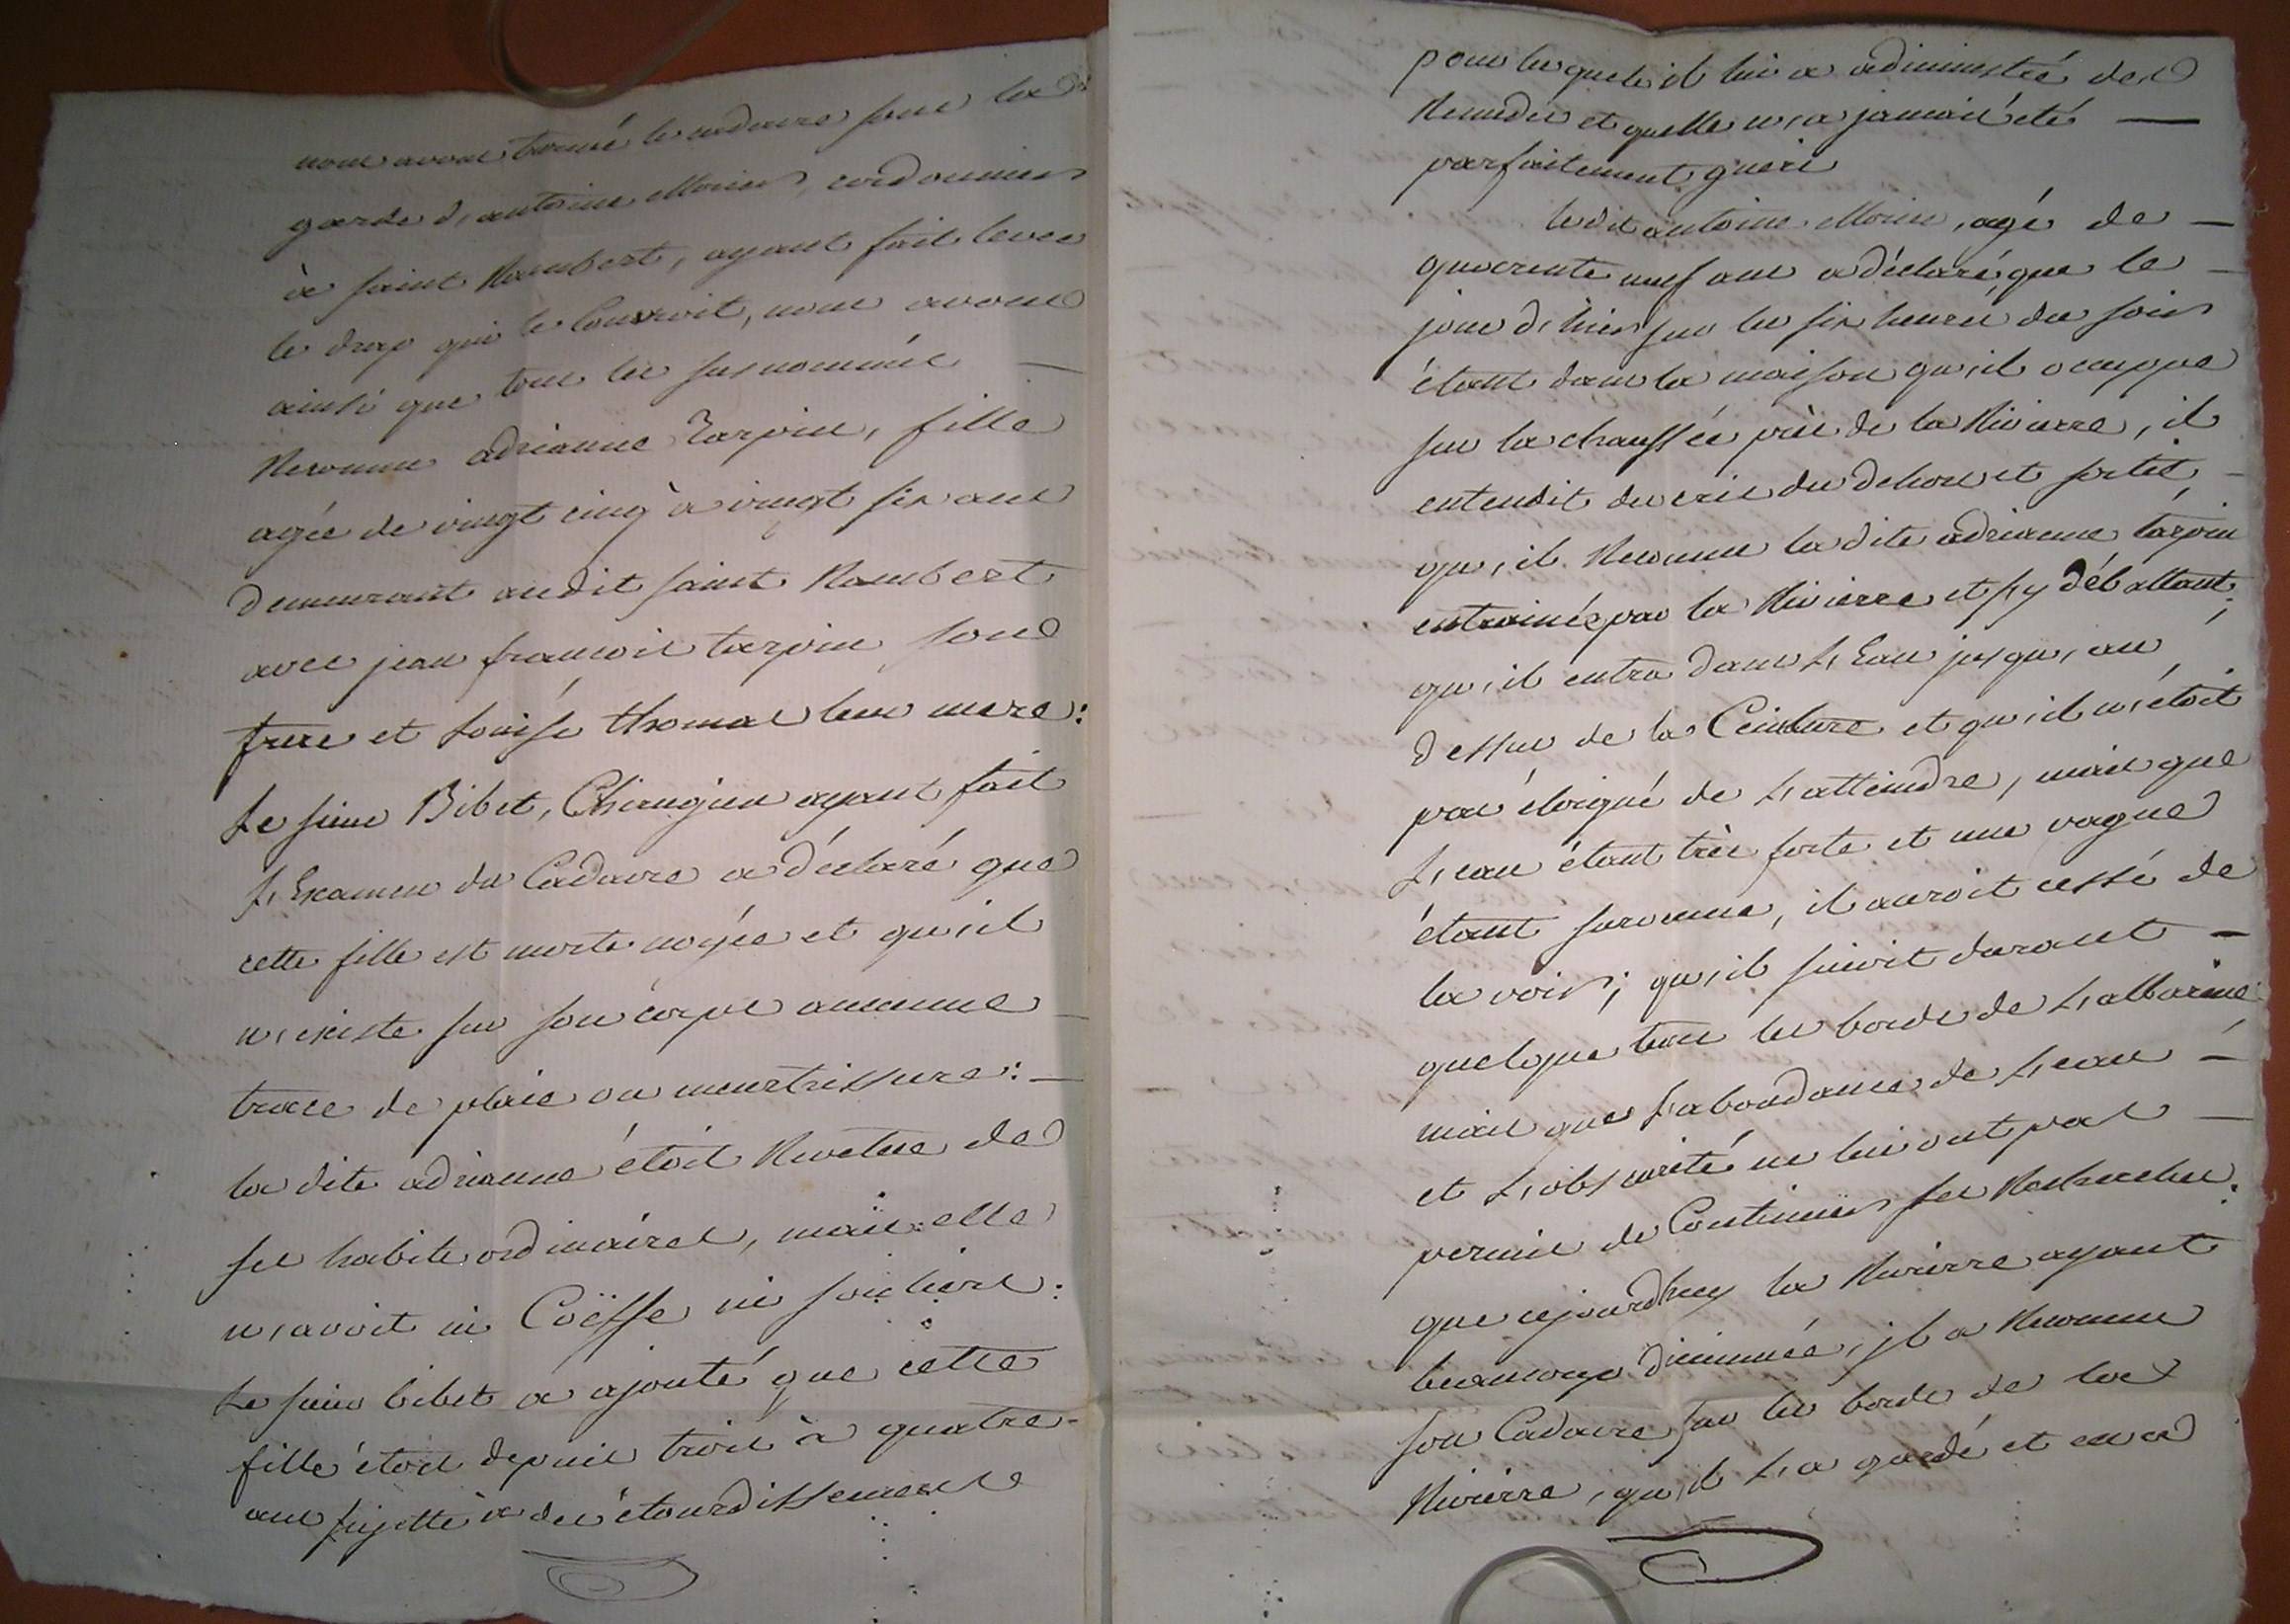 nous avons trouvé le cadavre sous la
garde d'antoine Morier, cordonnier
à saint Rambert, ayant fait lever
le drap qui le Couvroit, nous avons
ainsi que tous les susnommés —
Reconnu adrianne Tarpin, fille
agée de vingt cinq à vingt six ans
demeurant audit saint Rambert
avec jean francois tarpin son
frere et Louise thomas leur mere:
Le sieur Bibet, Chirurgien ayant fait
L'Examen du Cadavre a déclaré que
cette fille est morte noyée et qu'il
n'existe sur son corps aucunne —
trace de plaie ou meurtrissure: —
la dite adrianne étoit Revetue de
ses habits ordinaires, mais elle
n'avoit ni Coëffe ni souliers:
Le sieur bibet a ajouté que cette
fille étoit depuis trois à quatre
ans sujette à des étourdissements
pour lesquels il lui a administré des
Remedes et quelle n'a jamais été —
parfaitement guerie
le dit antoine Morier, agé de —
quarente neuf ans a déclaré, que le —
jour d'hier sur les six heures du soir
étant dans la maison qu'il occuppe
sur la chaussée près de la Rivierre, il
entendit des cris du dehors et sortit, —
qu'il Reconnu la dite adrianne tarpin
entrainée par la Rivierre et s'y débattant;
qu'il entra dans L'Eau jusqu'au
dessus de la Ceinture et qu'il n'étoit
pas éloigné de L'atteindre, mais que
L'eau étant très forte et une vague
étant survenue, il auroit cessé de
la voir; qu'il suivit durant —
quelque tems les bords de L'albarine
mais que L'abondance de L'eau —
et L'obscurité ne lui ont pas —
permis de Continuer ses Recherches:
que cejourdhuy la Rivierre ayant
beaucoup diminuée, il a Reconnu
son Cadavre sur les bords de la
Rivierre, qu'il L'a gardé et en a